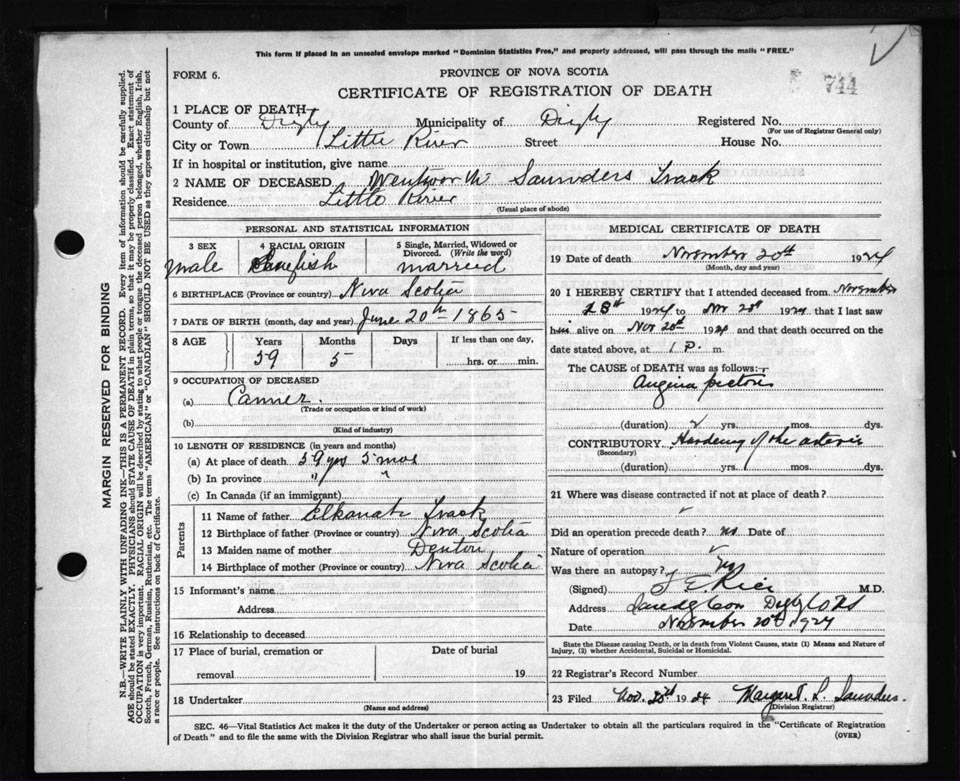 This form if placed in an unsealed envelope marked "Dominion Statistics Free," and properly addressed, will pass through the mails "FREE."
FORM 6.
PROVINCE OF NOVA SCOTIA
744
CERTIFICATE OF REGISTRATION OF DEATH
1 PLACE OF DEATH
County of Digby Municipality of Digby Registered No.
(For use of Registrar General only)
City or Town Little River Street House No.
If in hospital or institution, give name
2 NAME OF DECEASED Wentworth Saunders Track
Residence Little River
(Usual place of abode)
PERSONAL AND STATISTICAL INFORMATION
3 SEX 4 RACIAL ORIGIN 5 Single, Married, Widowed or Divorced. (Write the word)
male married
6 BIRTHPLACE (Province or country) Nova Scotia
7 DATE OF BIRTH (month, day and year) June 20th 1865
8 AGE Years Months Days If less than one day,
59 5 hrs. or min.
9 OCCUPATION OF DECEASED
(a) Canner.
(Trade or occupation or kind of work)
(b)
(Kind of industry)
10 LENGTH OF RESIDENCE (in years and months)
(a) At place of death 59 yrs 5 mos
(b) In province " "
(c) In Canada (if an immigrant)
Parents
11 Name of father Elkanah Track
12 Birthplace of father (Province or country) Nova Scotia
13 Maiden name of mother Denton
14 Birthplace of mother (Province or country) Nova Scotia
15 Informant's name
Address
16 Relationship to deceased
17 Place of burial, cremation or removal Date of burial
19
18 Undertaker
(Name and address)
MEDICAL CERTIFICATE OF DEATH
19 Date of death November 20th 1924
(Month, day and year)
20 I HEREBY CERTIFY that I attended deceased from November
1924 to Nov 20th 1924 that I last saw
him alive on Nov 20th 1924 and that death occurred on the
date stated above, at 1 P. m.
The CAUSE of DEATH was as follows:
Angina pectoris
(duration) 2 yrs. mos. dys.
CONTRIBUTORY Hardening of the arteries
(Secondary)
(duration) yrs. mos. dys.
21 Where was disease contracted if not at place of death?
Did an operation precede death? no Date of
Nature of operation
Was there an autopsy?
(Signed) Rice M.D.
Address Digby Co NS
Date November 20th 1924
State the Disease causing Death, or in death from Violent Causes, state (1) Means and Nature of Injury, (2) whether Accidental, Suicidal or Homicidal.
22 Registrar's Record Number
23 Filed Nov. 25th 1924 Margaret L. Saunders.
(Division Registrar)
SEC. 46—Vital Statistics Act makes it the duty of the Undertaker or person acting as Undertaker to obtain all the particulars required in the "Certificate of Registration
of Death" and to file the same with the Division Registrar who shall issue the burial permit.
(OVER)
MARGIN RESERVED FOR BINDING
N.B.—WRITE PLAINLY WITH UNFADING INK—THIS IS A PERMANENT RECORD. Every item of information should be carefully supplied.
AGE should be stated EXACTLY. PHYSICIANS should STATE CAUSE OF DEATH in plain terms, so that it may be properly classified. Exact statement of
OCCUPATION is very important. RACIAL ORIGIN will be described by stating to what people or tongue the deceased person belonged, whether English, Irish,
Scotch, French, German, Russian, Ruthenian, etc. The terms "AMERICAN" or "CANADIAN" SHOULD NOT BE USED as they express citizenship but not
a race or people. See instructions on back of Certificate.